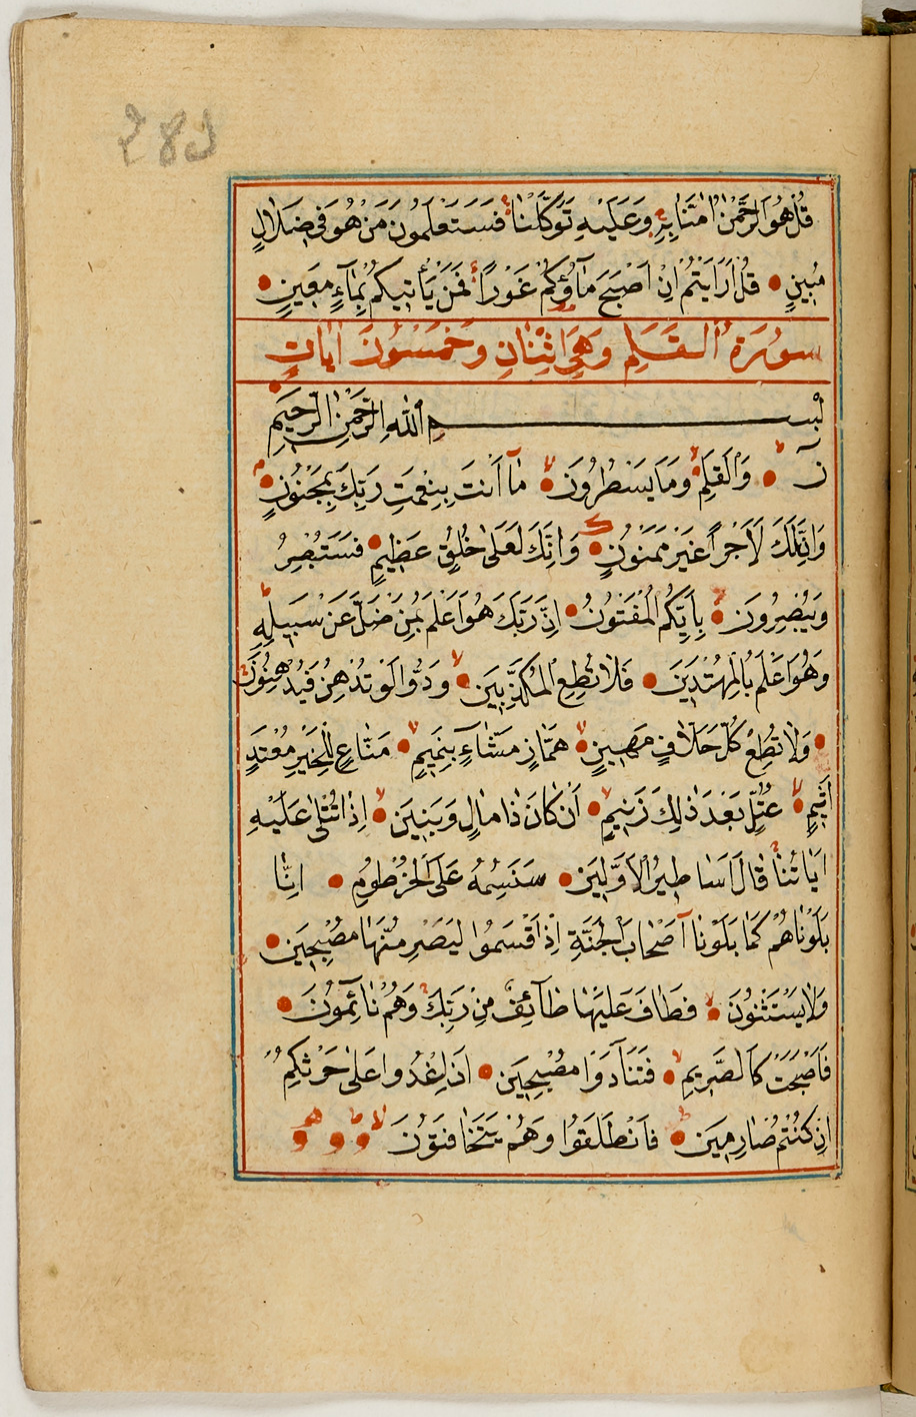 قُلْ هُوَ الرَّحْمٰنُ اٰمَنَّا بِهٖ وَعَلَيْهِ تَوَكَّلْنَا فَسَتَعْلَمُونَ مَنْ هُوَ فٖى ضَلَالٍ
مُبٖينٍ قُلْ اَرَاَيْتُمْ اِنْ اَصْبَحَ مَاؤُكُمْ غَوْرًا فَمَنْ يَاْتٖيكُمْ بِمَاۤءٍ مَعٖينٍ
سُورَةُ الْقَلَمِ وَهِىَ اِثْنَانِ وَخَمْسُونَ اٰيَاتٍ
بِسْمِ اللّٰهِ الرَّحْمٰنِ الرَّحٖيمِ
نۤ وَالْقَلَمِ وَمَا يَسْطُرُونَ مَاۤ اَنْتَ بِنِعْمَتِ رَبِّكَ بِمَجْنُونٍ
وَاِنَّ لَكَ لَاَجْرًا غَيْرَ مَمْنُونٍ وَاِنَّكَ لَعَلٰى خُلُقٍ عَظٖيمٍ فَسَتُبْصِرُ
وَيُبْصِرُونَ بِاَيِّكُمُ الْمَفْتُونُ اِنَّ رَبَّكَ هُوَ اَعْلَمُ بِمَنْ ضَلَّ عَنْ سَبٖيلِهٖ
وَهُوَ اَعْلَمُ بِالْمُهْتَدٖينَ فَلَا تُطِعِ الْمُكَذِّبٖينَ وَدُّوا لَوْ تُدْهِنُ فَيُدْهِنُونَ
وَلَا تُطِعْ كُلَّ حَلَّافٍ مَهٖينٍ هَمَّازٍ مَشَّاۤءٍ بِنَمٖيمٍ مَنَّاعٍ لِلْخَيْرِ مُعْتَدٍ
اَثٖيمٍ عُتُلٍّ بَعْدَ ذٰلِكَ زَنٖيمٍ اَنْ كَانَ ذَا مَالٍ وَبَنٖينَ اِذَا تُتْلٰى عَلَيْهِ
اٰيَاتُنَا قَالَ اَسَاطٖيرُ الْاَوَّلٖينَ سَنَسِمُهُ عَلَى الْخُرْطُومِ اِنَّا
بَلَوْنَاهُمْ كَمَا بَلَوْنَاۤ اَصْحَابَ الْجَنَّةِ اِذْ اَقْسَمُوا لَيَصْرِمُنَّهَا مُصْبِحٖينَ
وَلَا يَسْتَثْنُونَ فَطَافَ عَلَيْهَا طَاۤئِفٌ مِنْ رَبِّكَ وَهُمْ نَاۤئِمُونَ
فَاَصْبَحَتْ كَالصَّرٖيمِ فَتَنَادَوْا مُصْبِحٖينَ اَنِ اغْدُوا عَلٰى حَرْثِكُمْ
اِنْ كُنْتُمْ صَارِمٖينَ فَانْطَلَقُوا وَهُمْ يَتَخَافَتُونَ